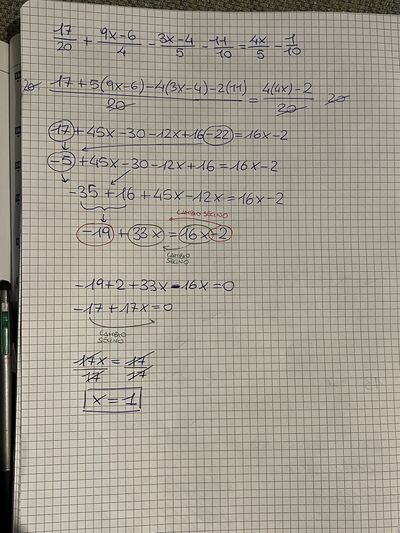 17/20 + (9x-6)/4 - (3x-4)/5 - 11/10 = 4x/5 - 1/10
20 (17+5(9x-6)-4(3x-4)-2(11))/20 = (4(4x)-2)/20 20
17+45x-30-12x+16-22=16x-2
-5+45x-30-12x+16=16x-2
-35+16+45x-12x=16x-2
CAMBIO SEGNO
-19+33x=16x-2
CAMBIO SEGNO
-19+2+33x-16x=0
-17+17x=0
CAMBIO SEGNO
17x/17 = 17/17
x=1